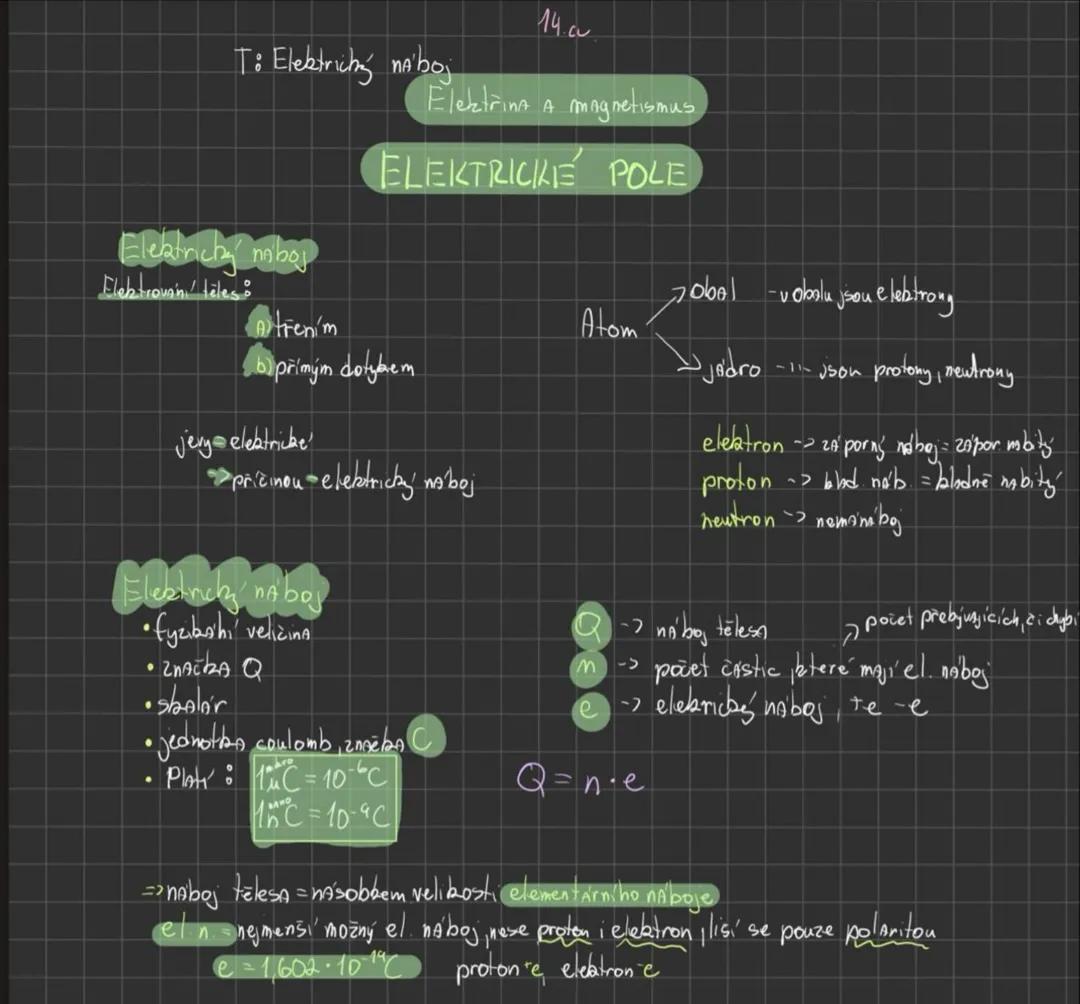 14.a
T: Elektrický náboj
Elektřina a magnetismus
ELEKTRICKÉ POLE
Elektrický náboj
Elektrování těles:
a) třením
b) přímým dotykem
jevy - elektrické
=> příčinou - elektrický náboj
Atom
→ Obal - v obalu jsou elektrony
→ jádro -"- jsou protony, neutrony
elektron -> záporný náboj = zápor nabitý
proton -> klad. náb. = kladně nabitý
neutron -> nemá náboj
Elektrický náboj
• fyzikální veličina
• značka Q
• skalár
• jednotka coulomb, značka C
• Platí:
mikro
1μC = 10⁻⁶C
nano
1nC = 10⁻⁹C
Q -> náboj tělesa
→ počet přebývajících, či chybí
n -> počet částic, které mají el. náboj
e -> elekrický náboj, +e -e
Q = n · e
=> náboj tělesa = násobkem velikosti elementárního náboje
el. n. = nejmenší možný el. náboj, nese proton i elektron, liší se pouze polaritou
e = 1,602 · 10⁻¹⁹C proton +e, elektron -e